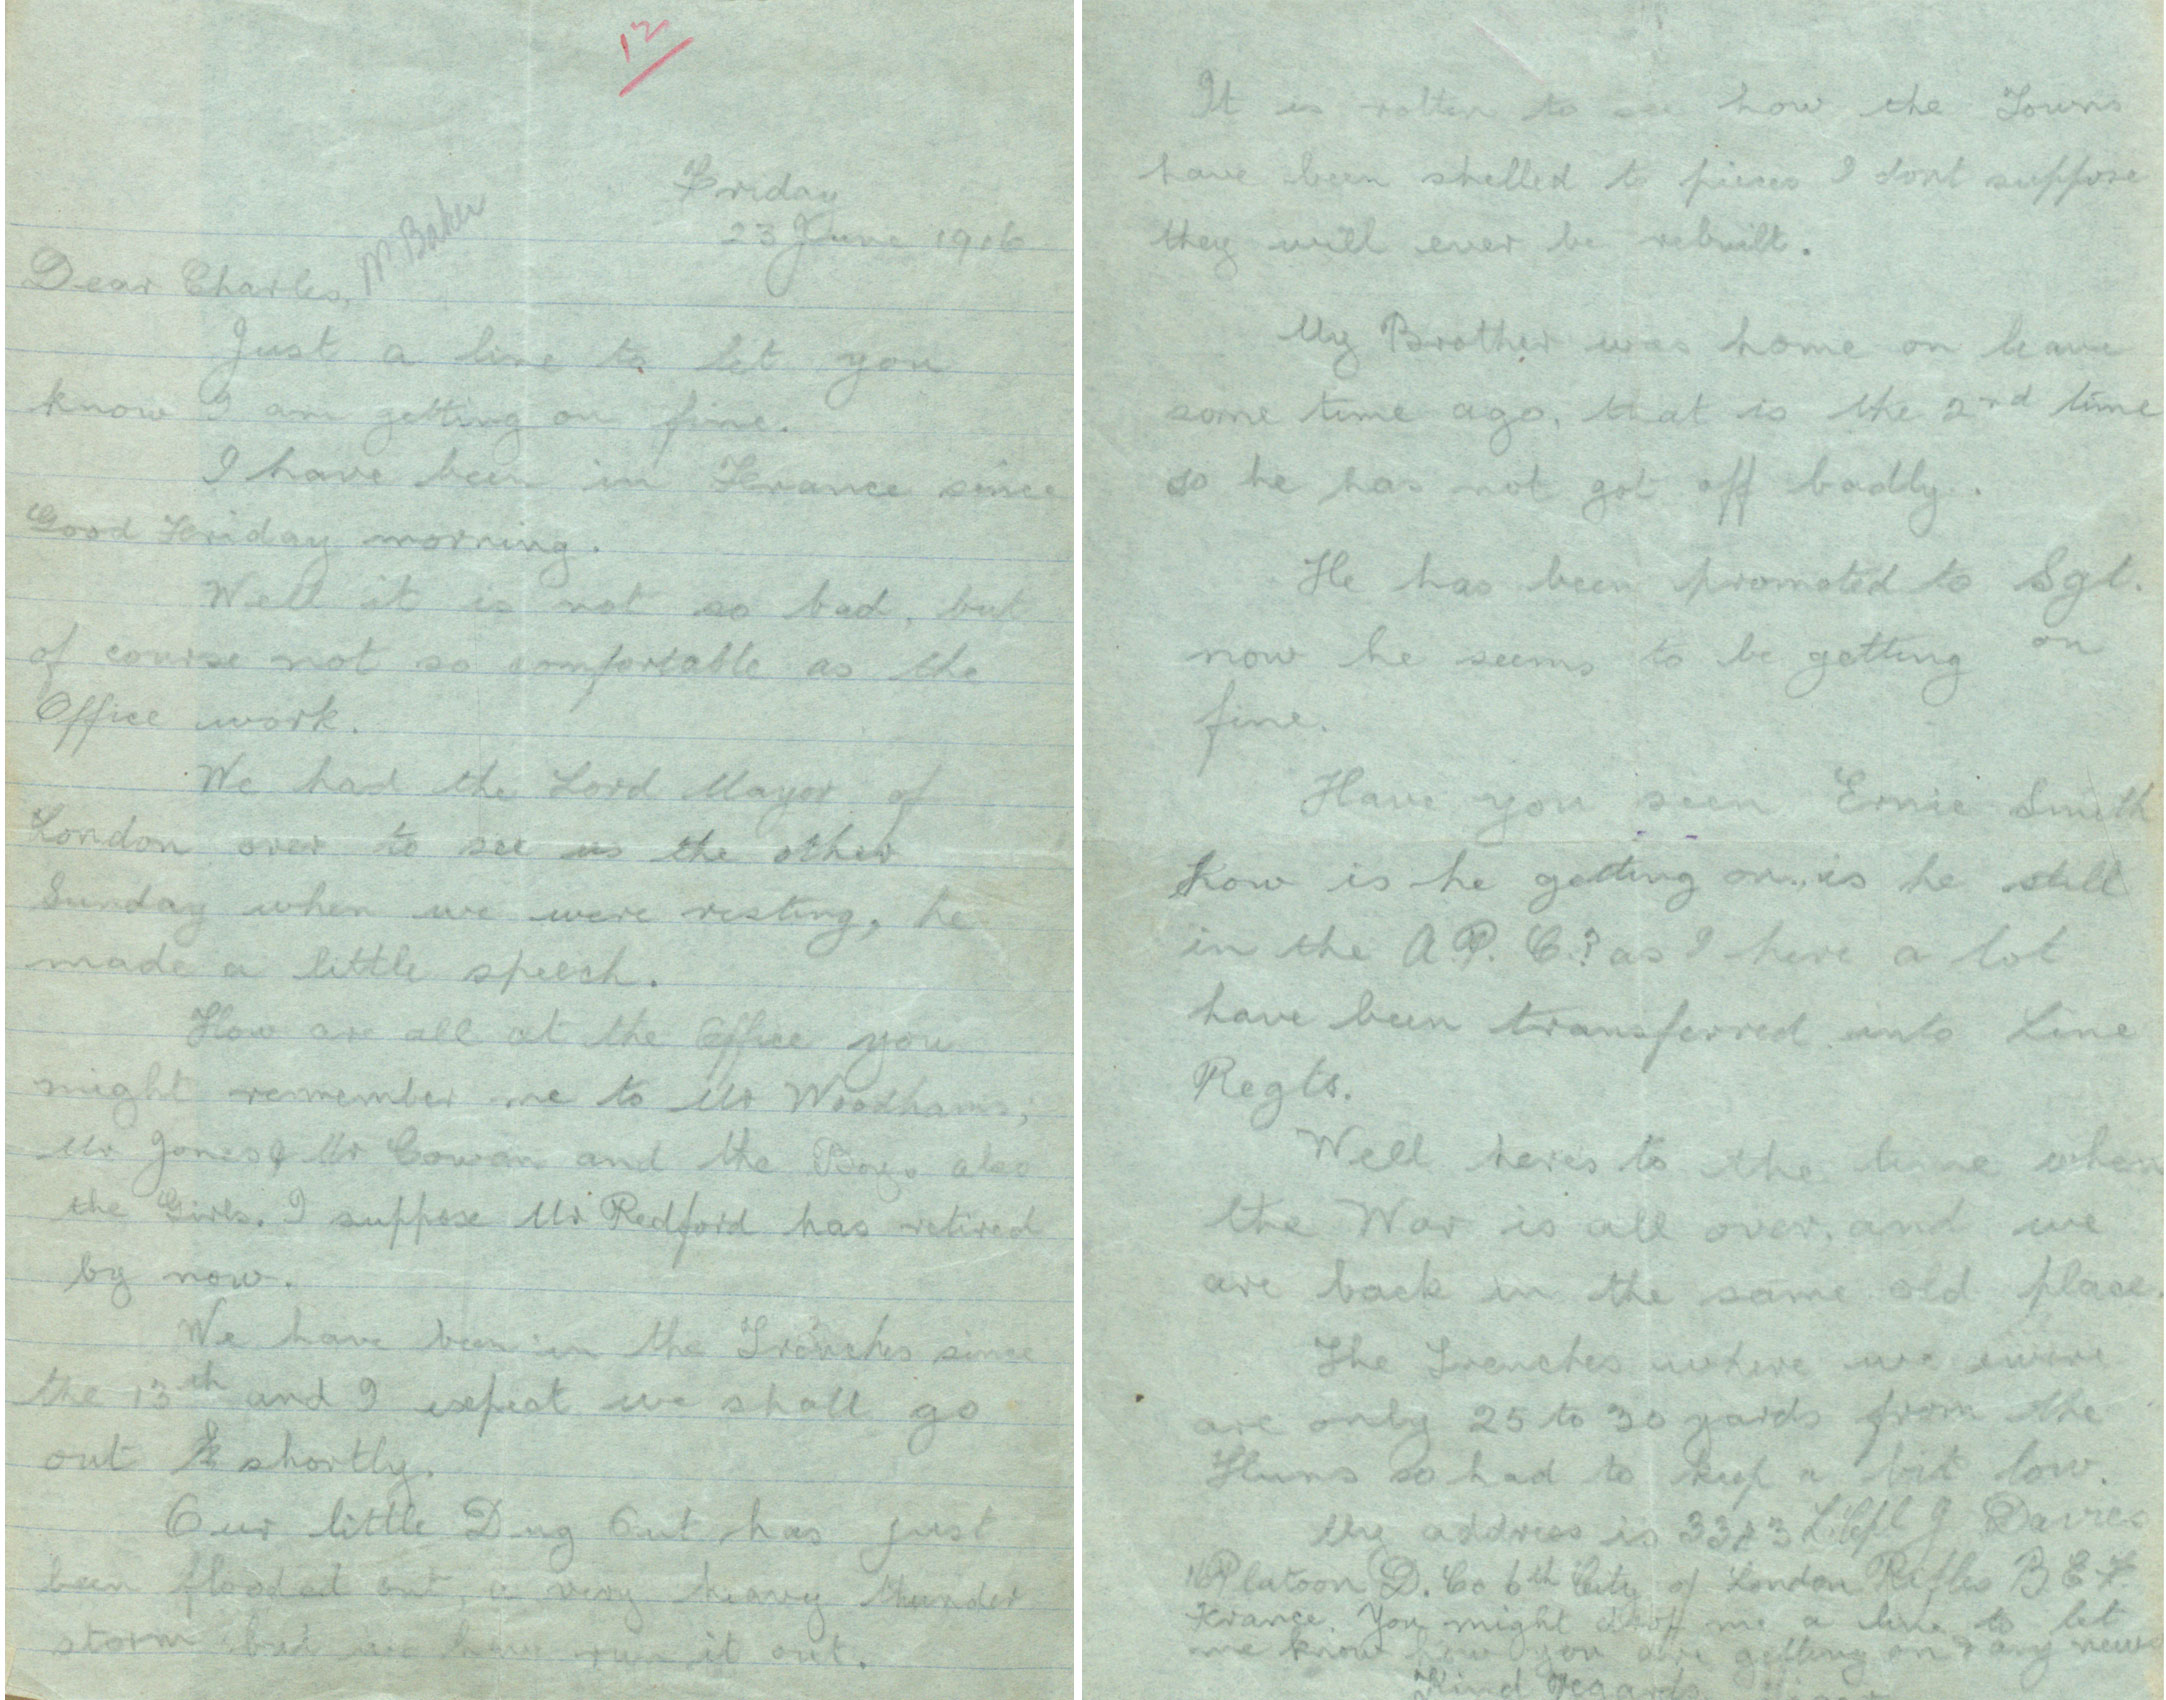 12
Friday
23 June 1916
Dear Charles, M. Baker
Just a line to let you
know I am getting on fine.
I have been in France since
Good Friday morning.
Well it is not so bad, but
of course not so comfortable as the
Office work.
We had the Lord Mayor of
London over to see us the other
Sunday when we were resting, he
made a little speech.
How are all at the Office you
might remember me to Mr Woodhams,
Mr Jones & Mr Cowan and the Boys also
the Girls. I suppose Mr Redford has retired
by now.
We have been in the Trenches since
the 13th and I expect we shall go
out shortly.
Our little Dug Out has just
been flooded out, a very heavy thunder
storm but we have run it out.
It is rotten to see how the Towns
have been shelled to pieces I dont suppose
they will ever be rebuilt.
My Brother was home on leave
some time ago, that is the 2nd time
so he has not got off badly.
He has been promoted to Sgt.
now he seems to be getting on
fine.
Have you seen Ernie Smith
how is he getting on, is he still
in the A.P.C.? as I here a lot
have been transferred into Line
Regts.
Well heres to the time when
the War is all over, and we
are back in the same old place.
The Trenches where we were
are only 25 to 30 yards from the
Huns so had to keep a bit low.
My address is L/Cpl J Davies
Platoon D. Co 6th City of London Rifles B E F.
France. You might drop me a line to let
me know how you are getting on & any news
Kind regards